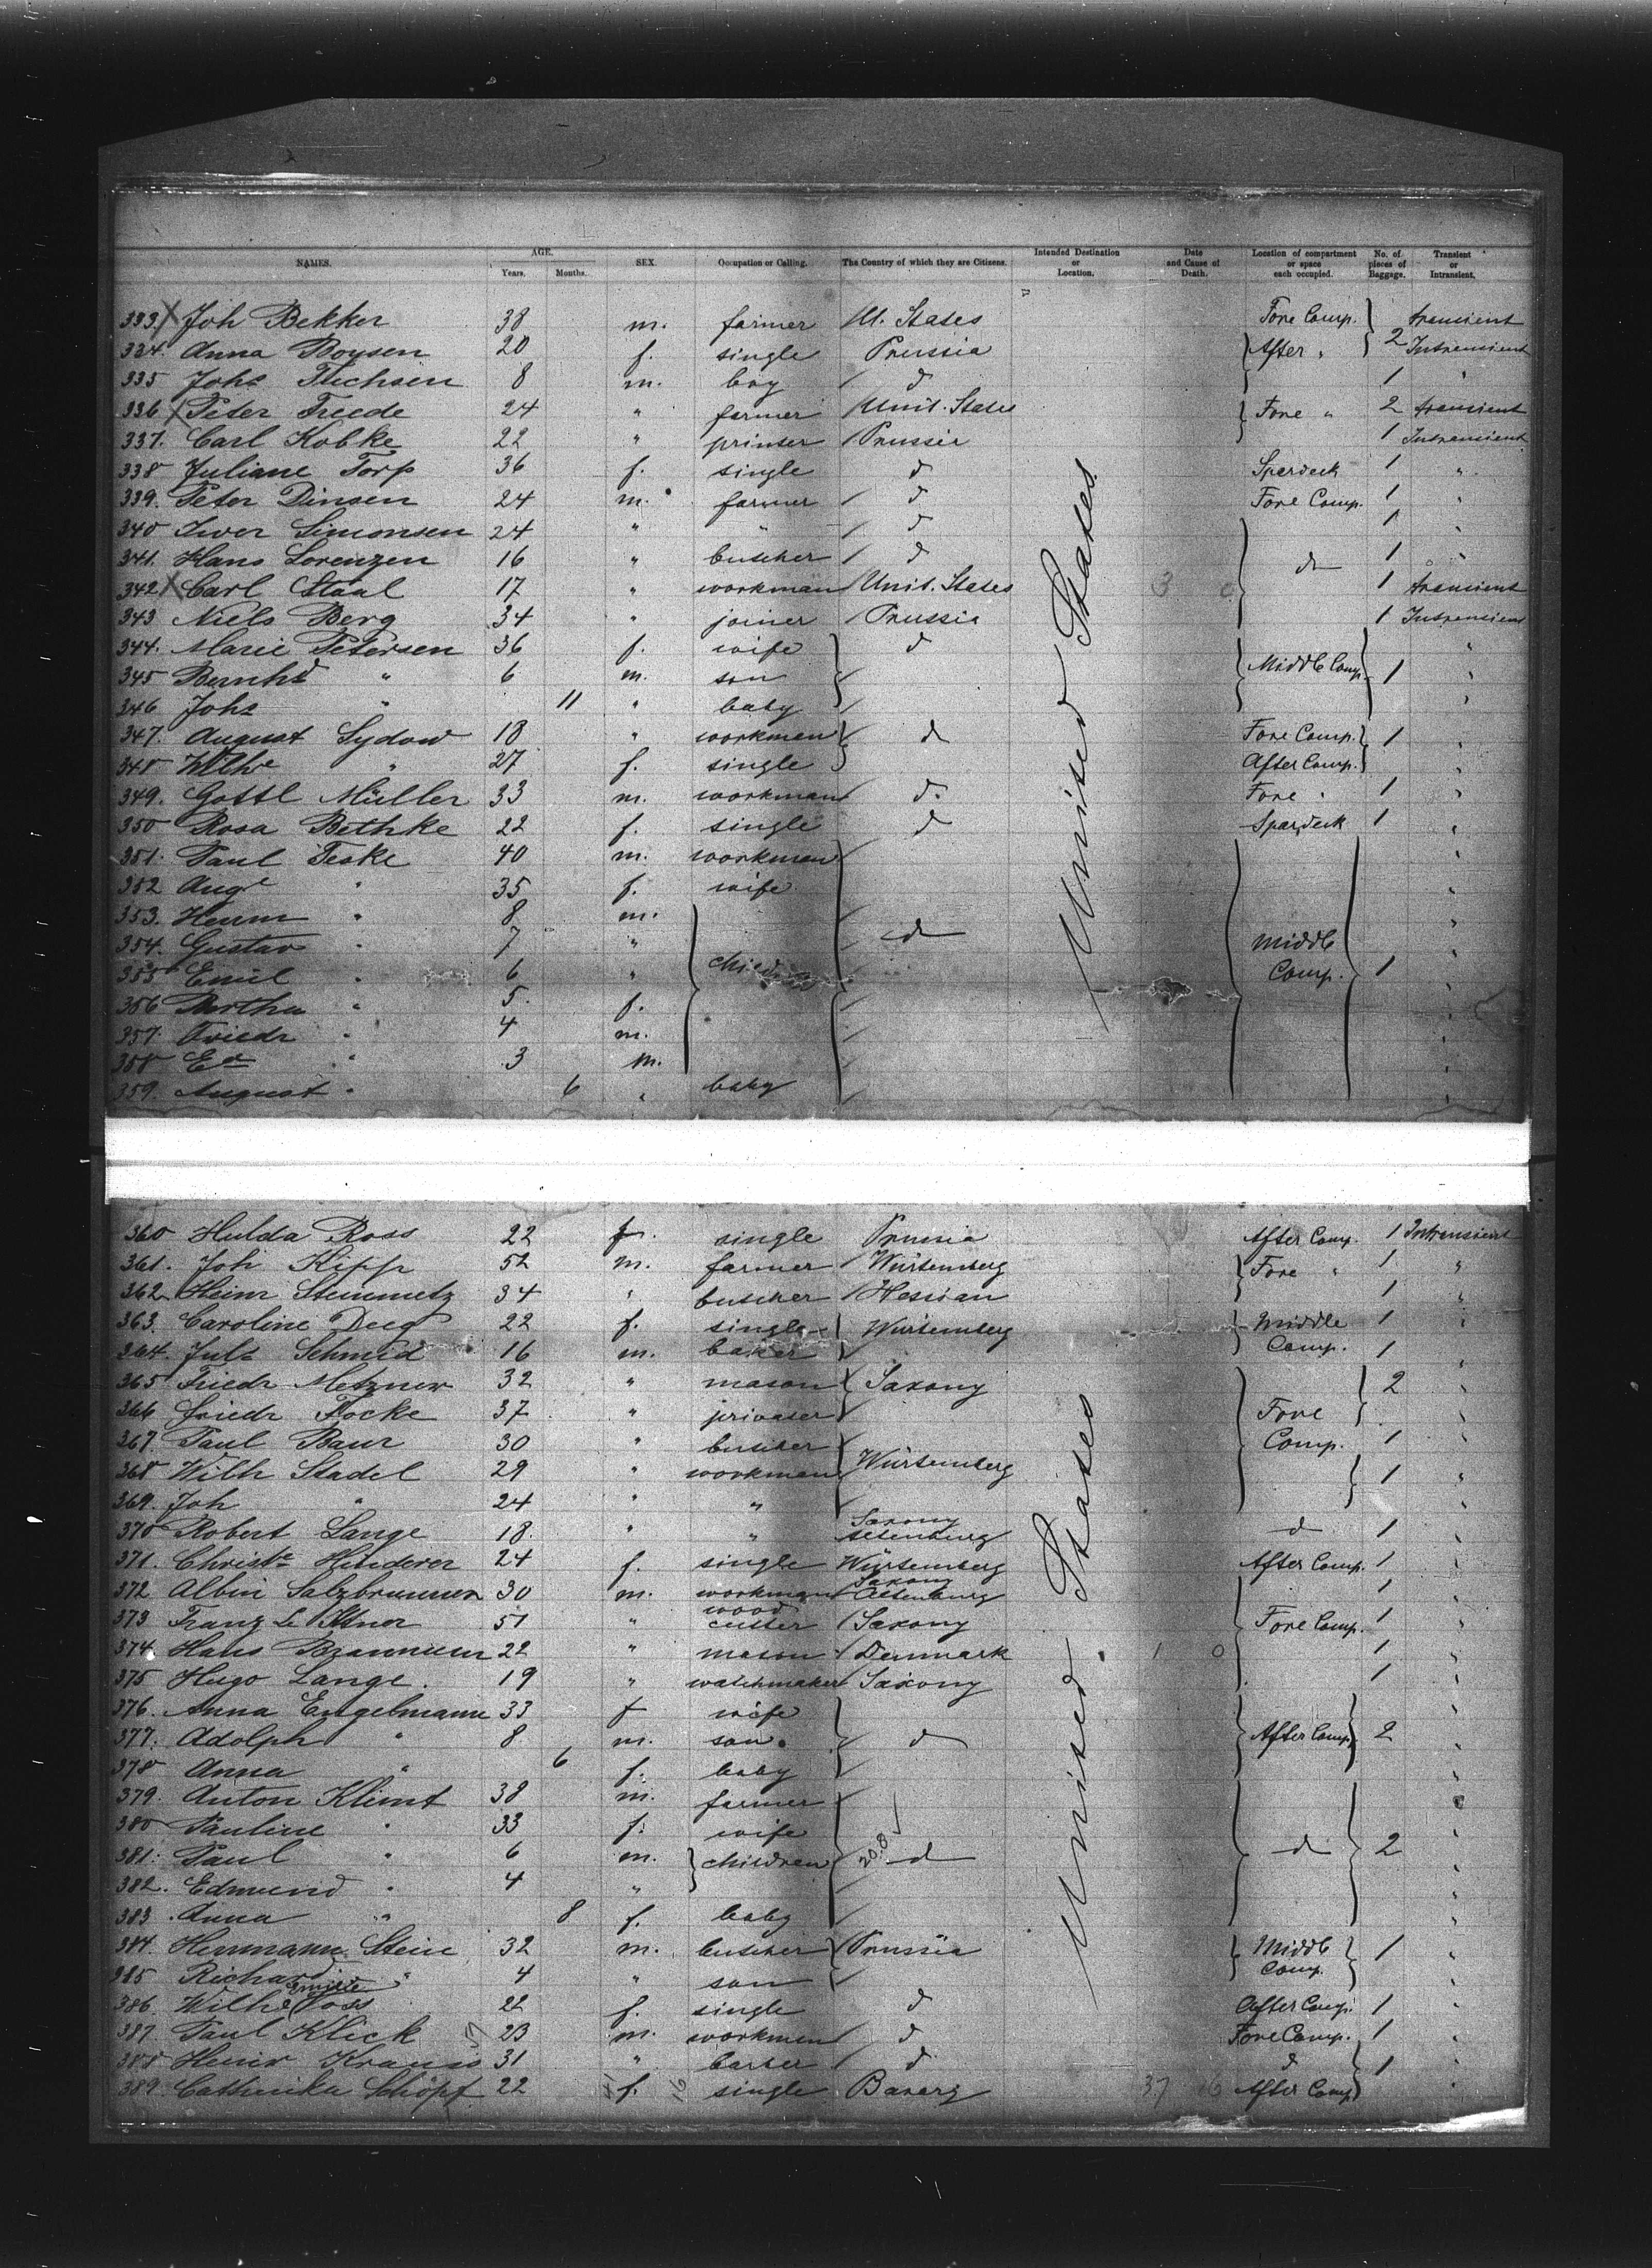 NAMES. AGE. Years. Months. SEX. Occupation or Calling. The Country of which they are Citizens. Intended Destination or Location. Date and Cause of Death. Location of compartment or space each occupied. No. of pieces of Baggage. Transient or Intransient.
333. X Joh Bekker 38 m. farmer U. States Fore Comp. transient
334. Anna Boysen 20 f. single Prussia After " 2 Intransient
335 Johs 8 m. boy d 1 "
336 X Peter Freede 24 " farmer Unit. States Fore " 2 transient
337. Carl Kobke 22 " printer Prussia 1 Intransient
338 Juliane Torp 36 f. single d Spardeck 1 "
339. Peter Dinsen 24 m. farmer d Fore Comp. 1 "
340 Iwer Simonsen 24 " " d 1 "
341. Hans Lorenzen 16 " butcher d d 1 "
342 X Carl Staal 17 " workman Unit. States 3 1 transient
343 Niels Berg 34 " joiner Prussia 1 Intransient
344. Marie Petersen 36 f. wife d "
345 Bernhd " 6 m. son Middle Comp. 1 "
346 Johs " 11 " baby "
347. August Sydow 18 " workman d Fore Comp. 1 "
348 Wilhe " 27 f. single After Comp. "
349. Gottl Müller 33 m. workman d. Fore " 1 "
350 Rosa Bethke 22 f. single d Spardeck 1 "
351. Paul Teske 40 m. workman "
352 Auge " 35 f. wife "
353. Herrm " 8 m. "
354. Gustav " 7 " d Middle "
355 Emil " 6 " children Comp. 1 "
356 Bertha " 5. f. "
357. Friedr " 4 m. "
358 Ed " 3 m. "
359. August " 6 " baby "
United States
360 Hulda Ross 22 f. single Prussia After Comp. 1 Intransient
361. Joh Kipp 52 m. farmer Würtemberg Fore " 1 "
362 Heinr Steinmetz 34 " butcher Hessian 1 "
363. Caroline Deeg 22 f. single Würtemberg Middle 1 "
364. Juls Schmid 16 m. baker Comp. 1 "
365 Friedr Metzner 32 " mason Saxony 2 "
366 Friedr Focke 37 " privater Fore "
367. Paul Baur 30 " butcher Comp. 1 "
368 Wilh Stadel 29 " workman Würtemberg 1 "
369. Joh " 24 " " "
370 Robert Lange 18. " " Saxony Altenburg d 1 "
371. Christe Hinderer 24 f. single Würtemberg After Comp. 1 "
372 Albin Salzbrunner 30 m. workman Saxony Altenburg 1 "
373 Franz 51 " wood cutter Saxony Fore Comp. 1 "
374. Hans 22 " mason Denmark 1 0 1 "
375 Hugo Lange. 19 " watchmaker Saxony 1 "
376. Anna Engelmann 33 f wife "
377. Adolph " 8 m. son. d After Comp. 2 "
378 Anna " 6 f. baby "
379. Anton Klimt 38 m. farmer "
380 Pauline " 33 f. wife "
381. Paul " 6 m. children 20.8 d d 2 "
382. Edmund " 4 " "
383 Anna " 8 f. baby "
384. Herrmann Stein 32 m. butcher Prussia Middle 1 "
385 Richard " 4 " son Comp. "
386. Wilhe Voss 22 f. single d After Comp. 1 "
387. Paul Klick 23 m. workman d Fore Comp. 1 "
388 Heinr Krauss 31 " barber d d 1 "
389. Catharika Schöpf 22 f. 16 single Bavery 37 16 After Comp "
United States